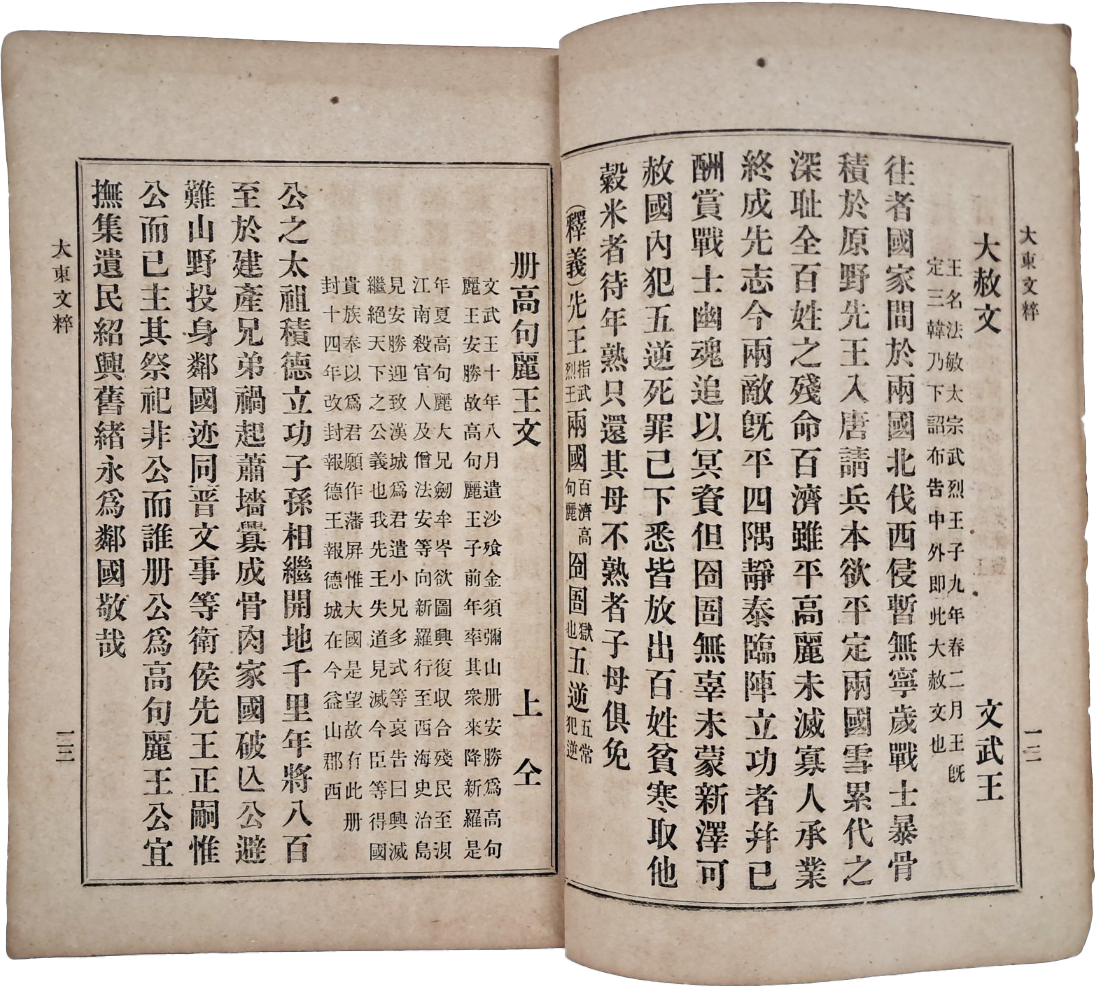 大東文粹
一二
大赦文　文武王
王名法敏太宗武烈王子九年春二月王旣
定三韓乃下詔布告中外卽此大赦文也
往者國家間於兩國北伐西侵暫無寧歲戰士暴骨
積於原野先王入唐請兵本欲平定兩國雪累代之
深耻全百姓之殘命百濟雖平高麗未滅寡人承業
終成先志今兩敵旣平四隅靜泰臨陣立功者幷已
酬賞戰士幽魂追以冥資但囹圄無辜未蒙新澤可
赦國內犯五逆死罪已下悉皆放出百姓貧寒取他
穀米者待年熟只還其母不熟者子母俱免
(釋義)先王指武烈王兩國百濟高句麗囹圄獄也五逆五常犯逆
册高句麗王文　上仝
文武王十年八月遣沙飡金須彌山册安勝爲高句
麗王安勝故高句麗王子前年率其衆來降新羅是
年夏高句麗大兄劒牟岑欲圖興復収合殘民至浿
江南殺官人及僧法安等向新羅行至西海史治島
兄安勝迎致漢城爲君遣小兄多式等哀告曰興滅
繼絕天下之公義也我先王失道見滅今臣等得國
貴族奉以爲君願作藩屏惟大國是望故有此册
封十四年改封報德王報德城在今益山郡西
公之太祖積德立功子孫相繼開地千里年將八百
至於建產兄弟禍起蕭墻釁成骨肉家國破亾公避
難山野投身鄰國迹同晋文事等衛侯先王正嗣惟
公而已主其祭祀非公而誰册公爲高句麗王公宜
撫集遺民紹興舊緖永爲鄰國敬哉
大東文粹
一三